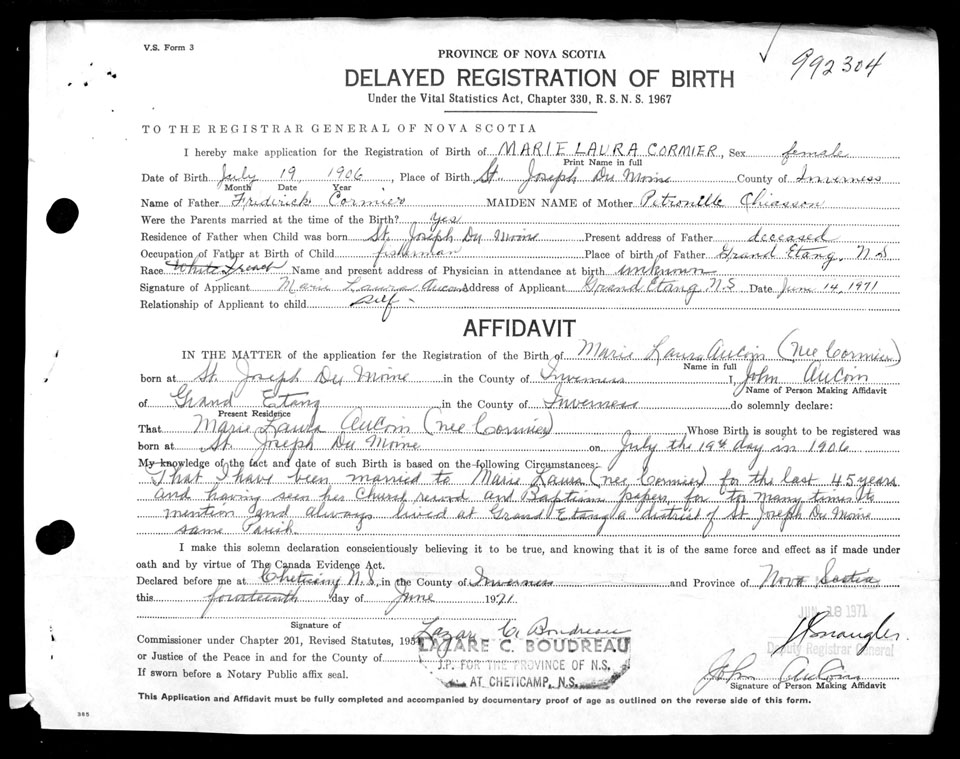 V.S. Form 3
992304
PROVINCE OF NOVA SCOTIA
DELAYED REGISTRATION OF BIRTH
Under the Vital Statistics Act, Chapter 330, R. S. N. S. 1967
TO THE REGISTRAR GENERAL OF NOVA SCOTIA
I hereby make application for the Registration of Birth of MARIE LAURA CORMIER, Sex female
Print Name in full
Date of Birth July 19 1906, Place of Birth St. Joseph Du Moine County of Inverness
Month Date Year
Name of Father Frederick Cormier MAIDEN NAME of Mother Petronelle Chiasson
Were the Parents married at the time of the Birth? yes
Residence of Father when Child was born St. Joseph Du Moine Present address of Father deceased
Occupation of Father at Birth of Child fisherman Place of birth of Father Grand Etang, N S
Race White French Name and present address of Physician in attendance at birth unknown
Signature of Applicant Marie Laura Aucoin Address of Applicant Grand Etang, N.S. Date June 14, 1971
Relationship of Applicant to child self -
AFFIDAVIT
IN THE MATTER of the application for the Registration of the Birth of Marie Laura AuCoin (Nee Cormier)
Name in full
born at St. Joseph Du Moine in the County of Inverness I, John AuCoin
Name of Person Making Affidavit
of Grand Etang in the County of Inverness do solemnly declare:
Present Residence
That Marie Laura AuCoin (nee Cormier) Whose Birth is sought to be registered was
born at St. Joseph Du Moine on July the 19th day in 1906
My knowledge of the fact and date of such Birth is based on the following Circumstances:
That I have been married to Marie Laura (nee Cormier) for the last 45 years
and having seen her Church record and Baptism papers for too many times to
mention and always lived at Grand Etang a district of St. Joseph Du Moine
same Parish.
I make this solemn declaration conscientiously believing it to be true, and knowing that it is of the same force and effect as if made under
oath and by virtue of The Canada Evidence Act.
Declared before me at Cheticamp N.S. in the County of Inverness and Province of Nova Scotia
this fourteenth day of June 1971
JUN 18 1971
Signature of
Lazare C. Boudreau
Commissioner under Chapter 201, Revised Statutes, 195
LAZARE C. BOUDREAU
Deputy Registrar General
or Justice of the Peace in and for the County of
J.P. FOR THE PROVINCE OF N.S.
If sworn before a Notary Public affix seal.
AT CHETICAMP, N.S.
John AuCoin
Signature of Person Making Affidavit
This Application and Affidavit must be fully completed and accompanied by documentary proof of age as outlined on the reverse side of this form.
385